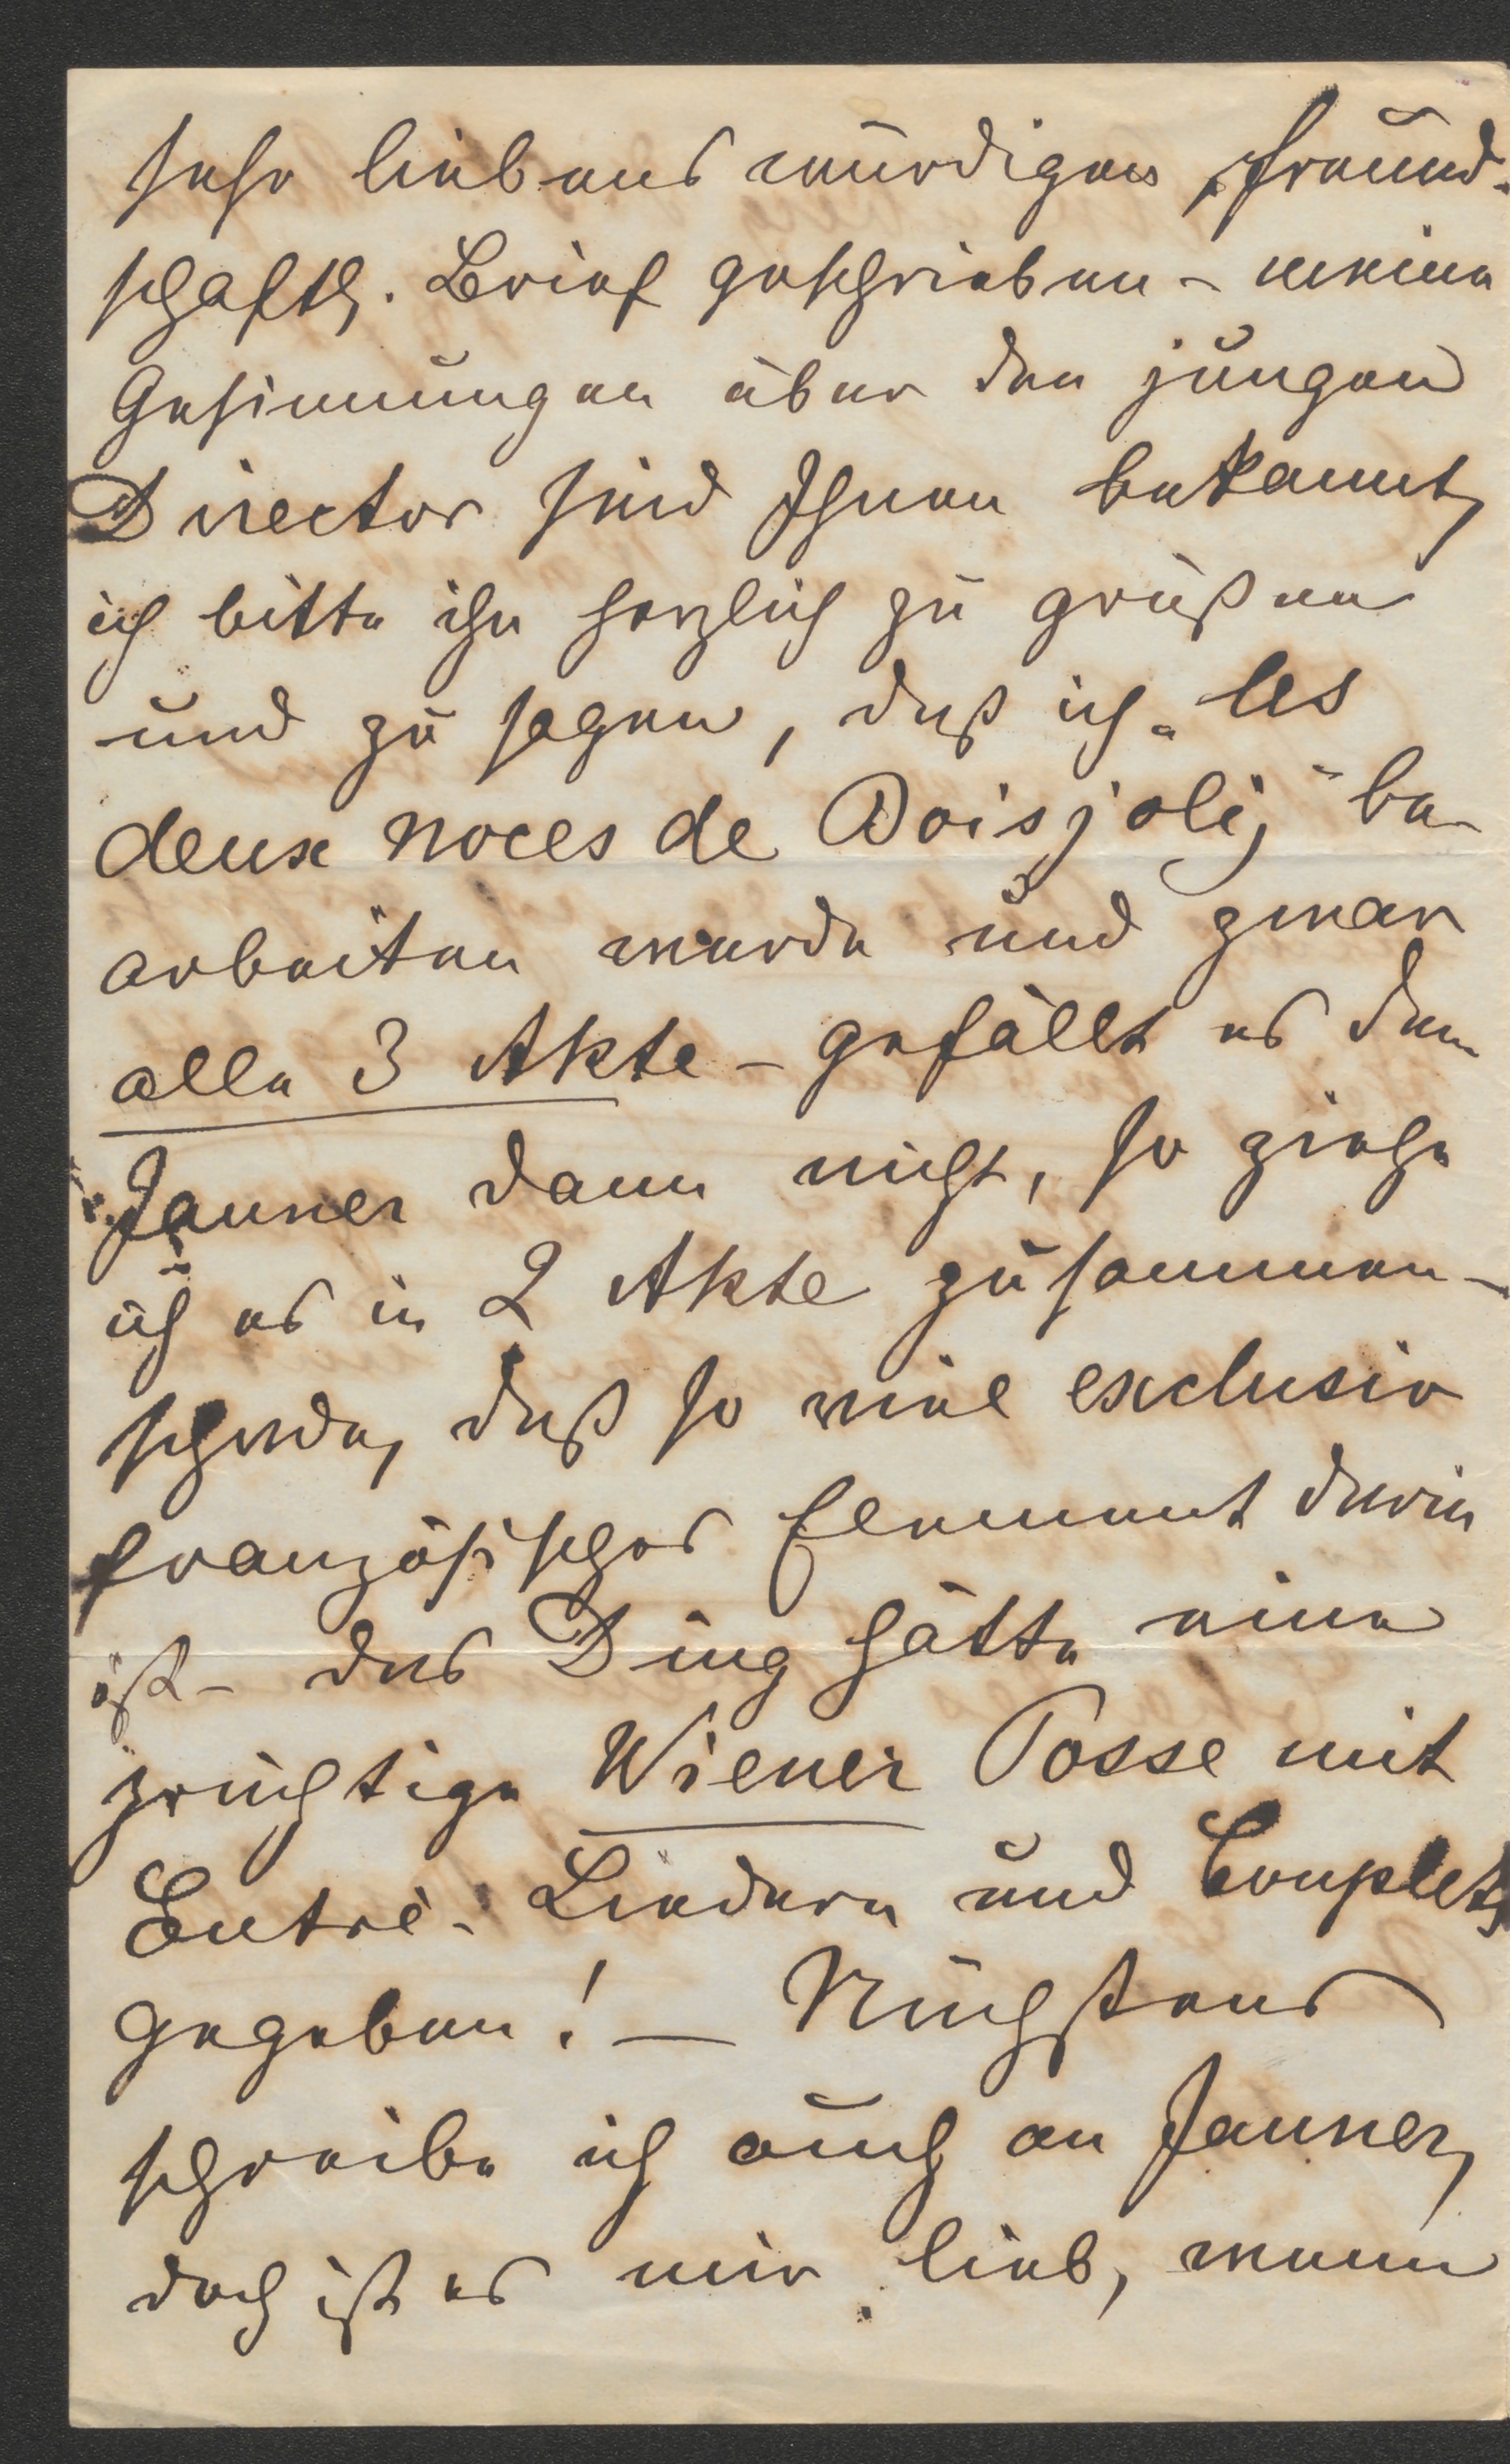 sehr liebenswürdigen, freund-
schaftl. Brief geschrieben – meine
Gesinnungen über den jungen
Director sind Ihnen bekannt,
ich bitte ihn herzlich zu grüßen
und zu sagen, daß ich „les
deux noces de Boisjoli“ be-
arbeiten werde und zwar
alle 3 Akte – gefällt es dem
Jauner dann nicht, so ziehe
ich es in 2 Akte zusammen –
schade, daß so viel exclusiv
französisches Element darin
ist – das Ding hätte eine
prächtige Wiener Posse mit
Entrè-Liedern und Couplets
gegeben! – Nächstens
schreibe ich auch an Jauner,
doch ist es mir lieb, wenn